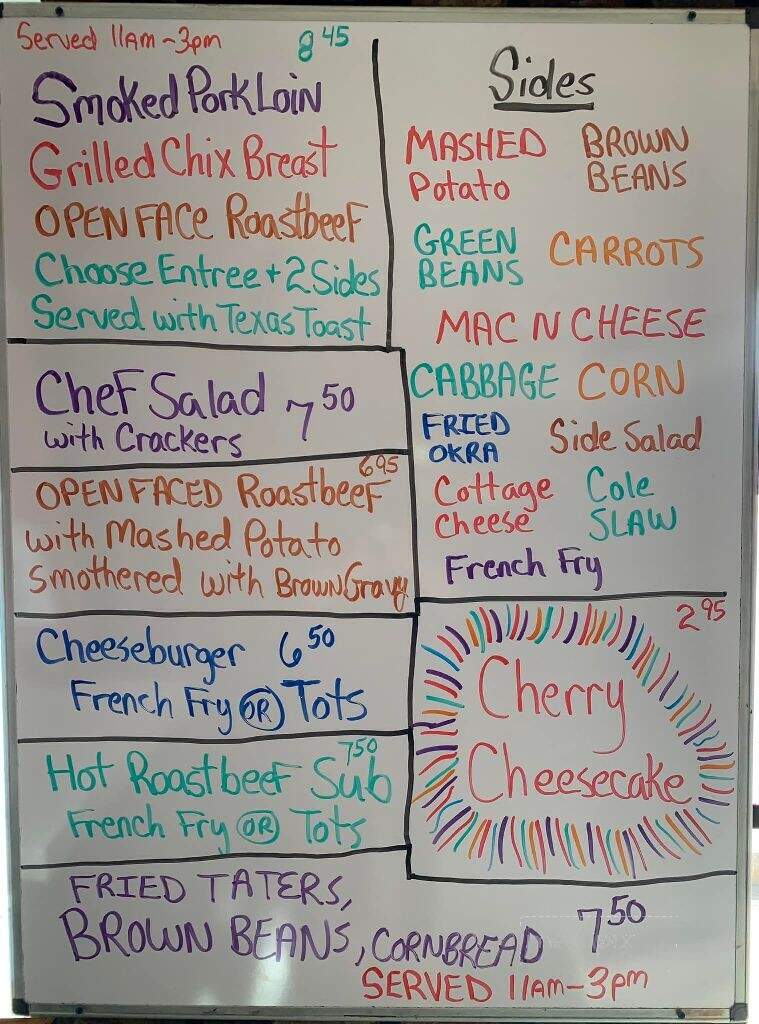 Served 11am-3pm 8 45
Smoked Pork Loin
Grilled Chix Breast
OPEN FACE Roastbeef
Choose Entree + 2 Sides
Served with Texas Toast
Chef Salad 7 50
with Crackers
OPEN FACED Roastbeef 6 95
with Mashed Potato
Smothered with Brown Gravy
Cheeseburger 6 50
French Fry OR Tots
Hot Roastbeef Sub 7 50
French Fry OR Tots
Sides
MASHED Potato
BROWN BEANS
GREEN BEANS
CARROTS
MAC N CHEESE
CABBAGE CORN
FRIED OKRA
Side Salad
Cottage Cheese
Cole SLAW
French Fry
2 95
Cherry
Cheesecake
FRIED TATERS,
BROWN BEANS, CORNBREAD 7 50
SERVED 11AM-3pm